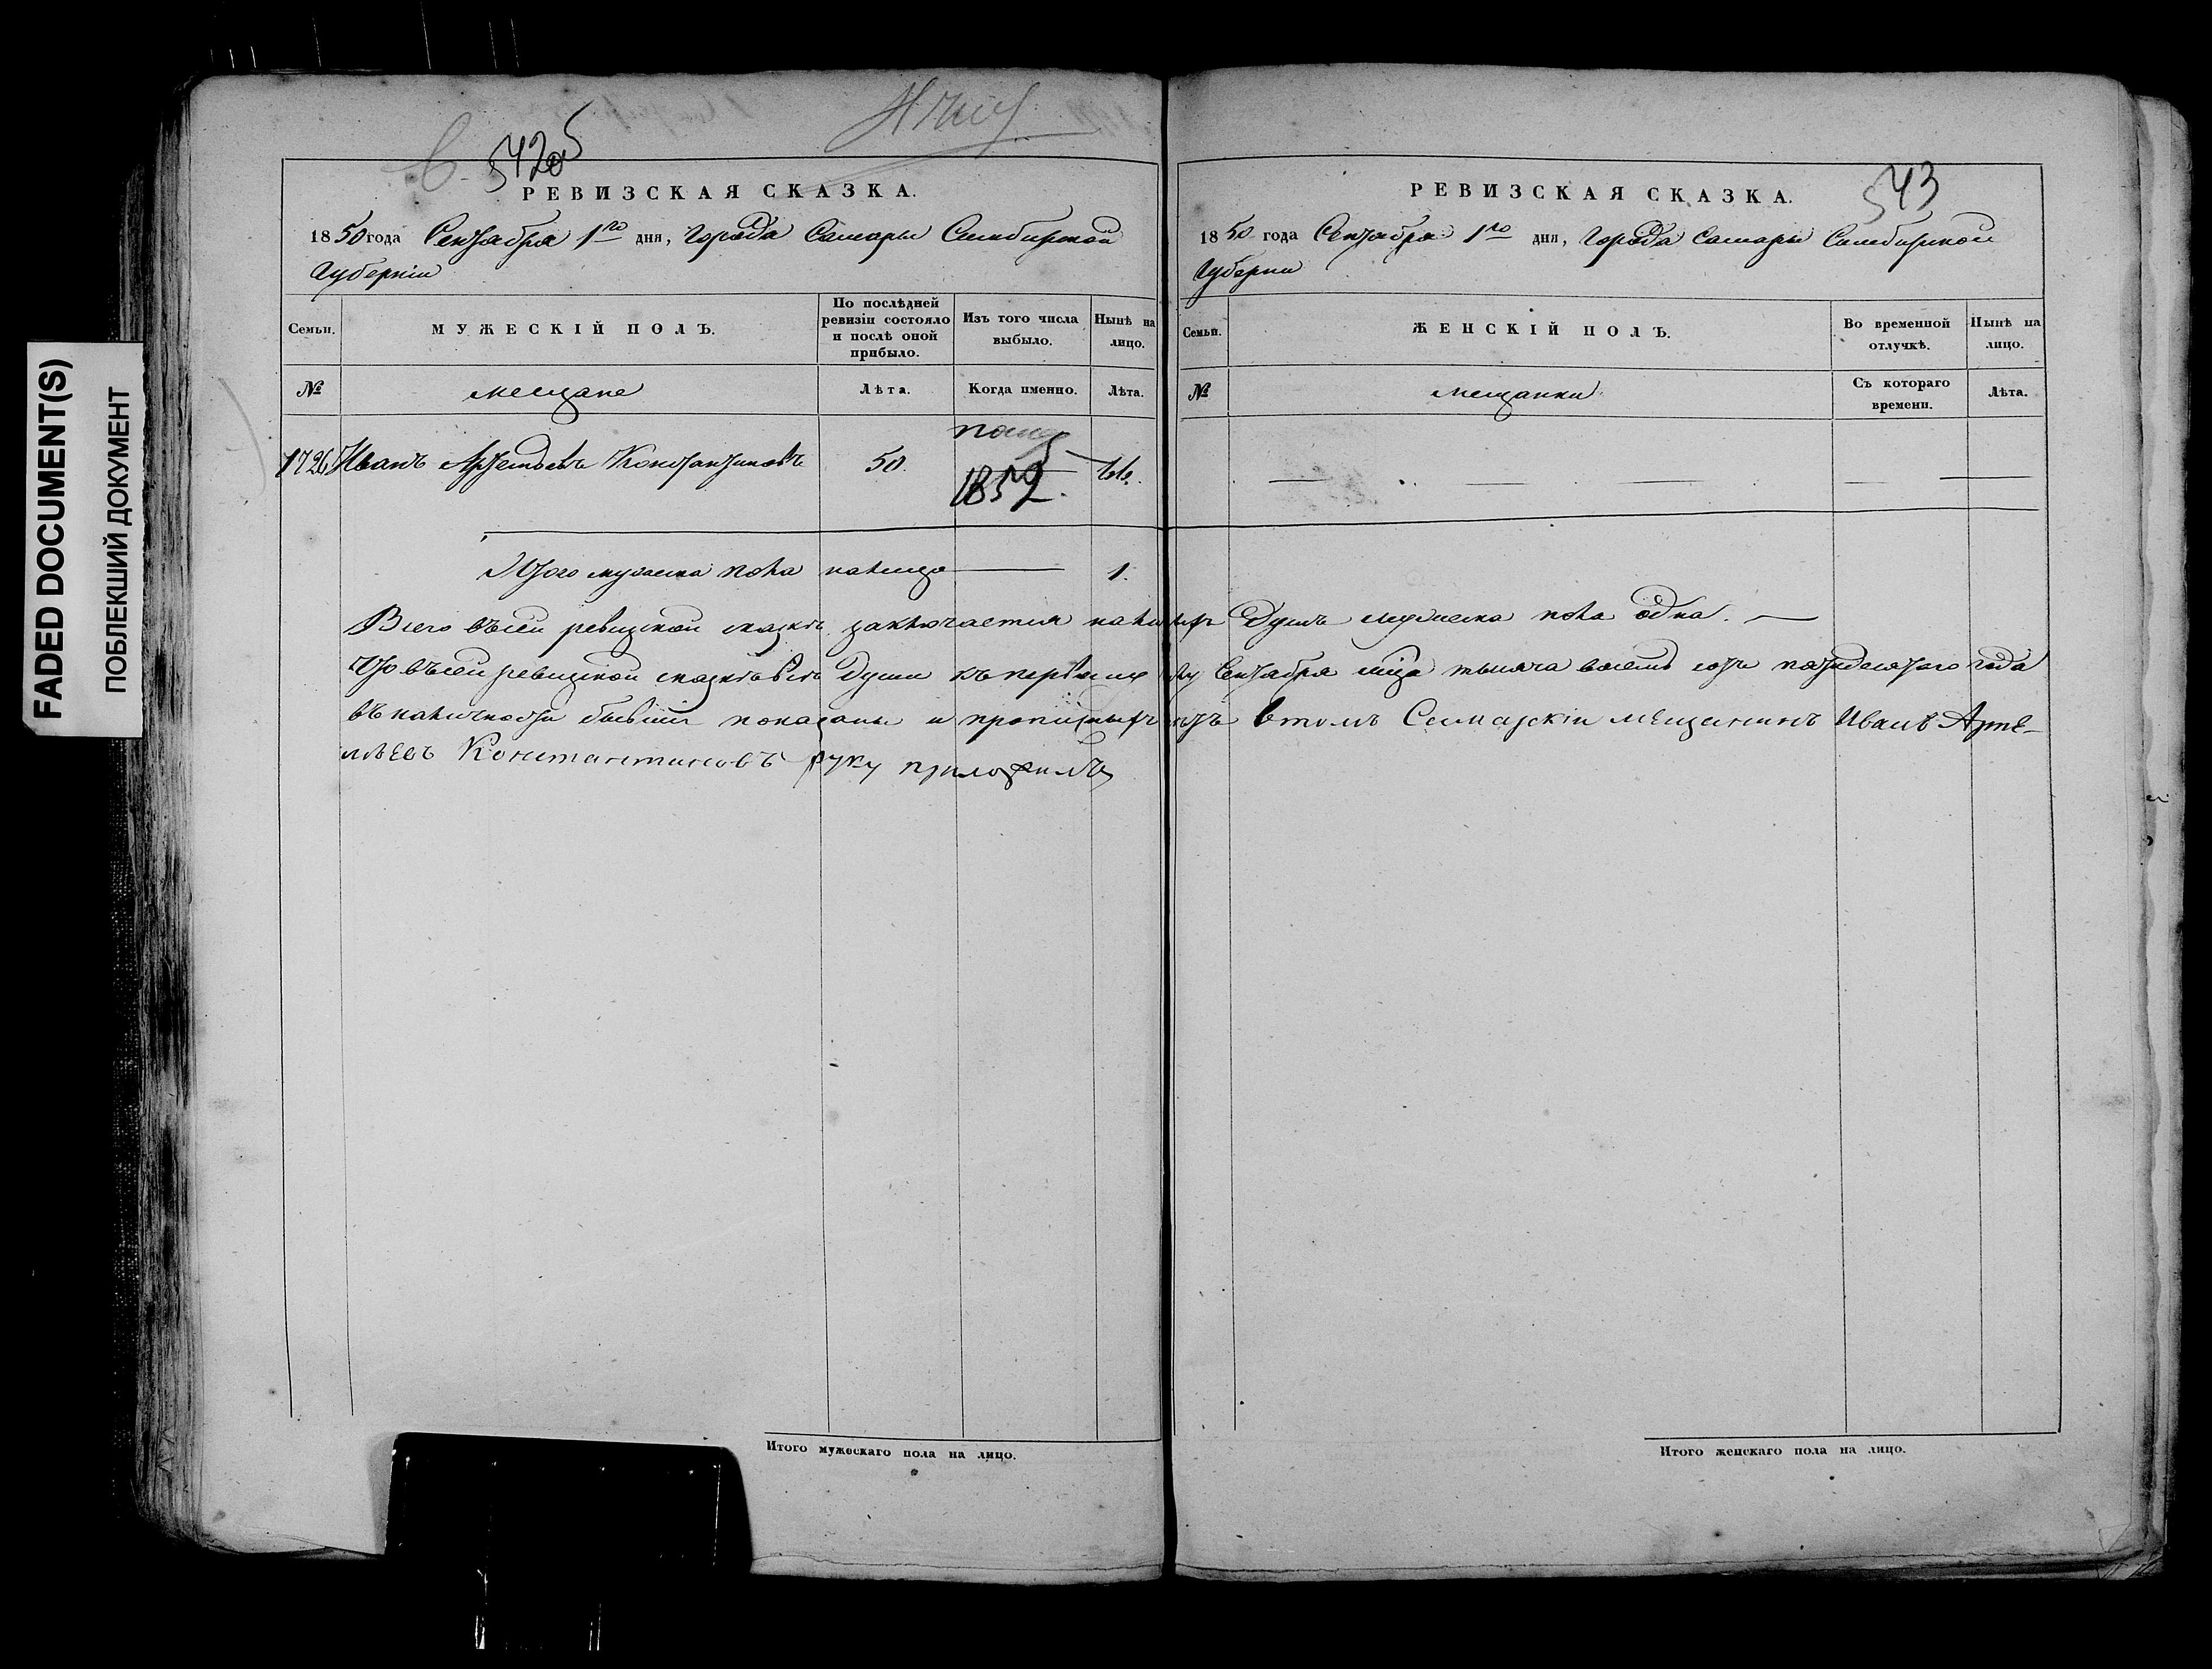 FADED DOCUMENT(S)
ПОБЛЕКШИЙ ДОКУМЕНТ
542об
РЕВИЗСКАЯ СКАЗКА.
1850 года Сентября 1го дня, Города Самары Симбирской
Губернiи
Семьи.
МУЖЕСКIЙ ПОЛЪ.
По послѣдней
ревизiи состояло
и послѣ оной
прибыло.
Изъ того числа
выбыло.
Нынѣ на
лицо.
№
мещане
Лѣта.
Когда именно.
Лѣта.
1726 Иванъ Артемьевъ Константиновъ
50.
1852.
66.
Итого мужеска пола налицо — 1.
543
РЕВИЗСКАЯ СКАЗКА.
1850 года Сентября 1го дня, Города Самары Симбирской
Губернiи
Семьи.
ЖЕНСКIЙ ПОЛЪ.
Во временной
отлучкѣ.
Нынѣ на
лицо.
№
мещанки
Съ котораго
времени.
Лѣта.
Всего въ сей ревизской сказкѣ заключается налицо душъ мужеска пола одна. —
Что въ сей ревизской сказкѣ всѣ души къ первому Сентября мца тысяча восемь сотъ пятидесятого года
въ наличности бывшiе показаны и прописныхъ нѣтъ втомъ Самарскiи мещанинъ Иванъ Арте-
мьевъ Константиновъ руку приложилъ
Итого мужескаго пола на лицо.
Итого женскаго пола на лицо.